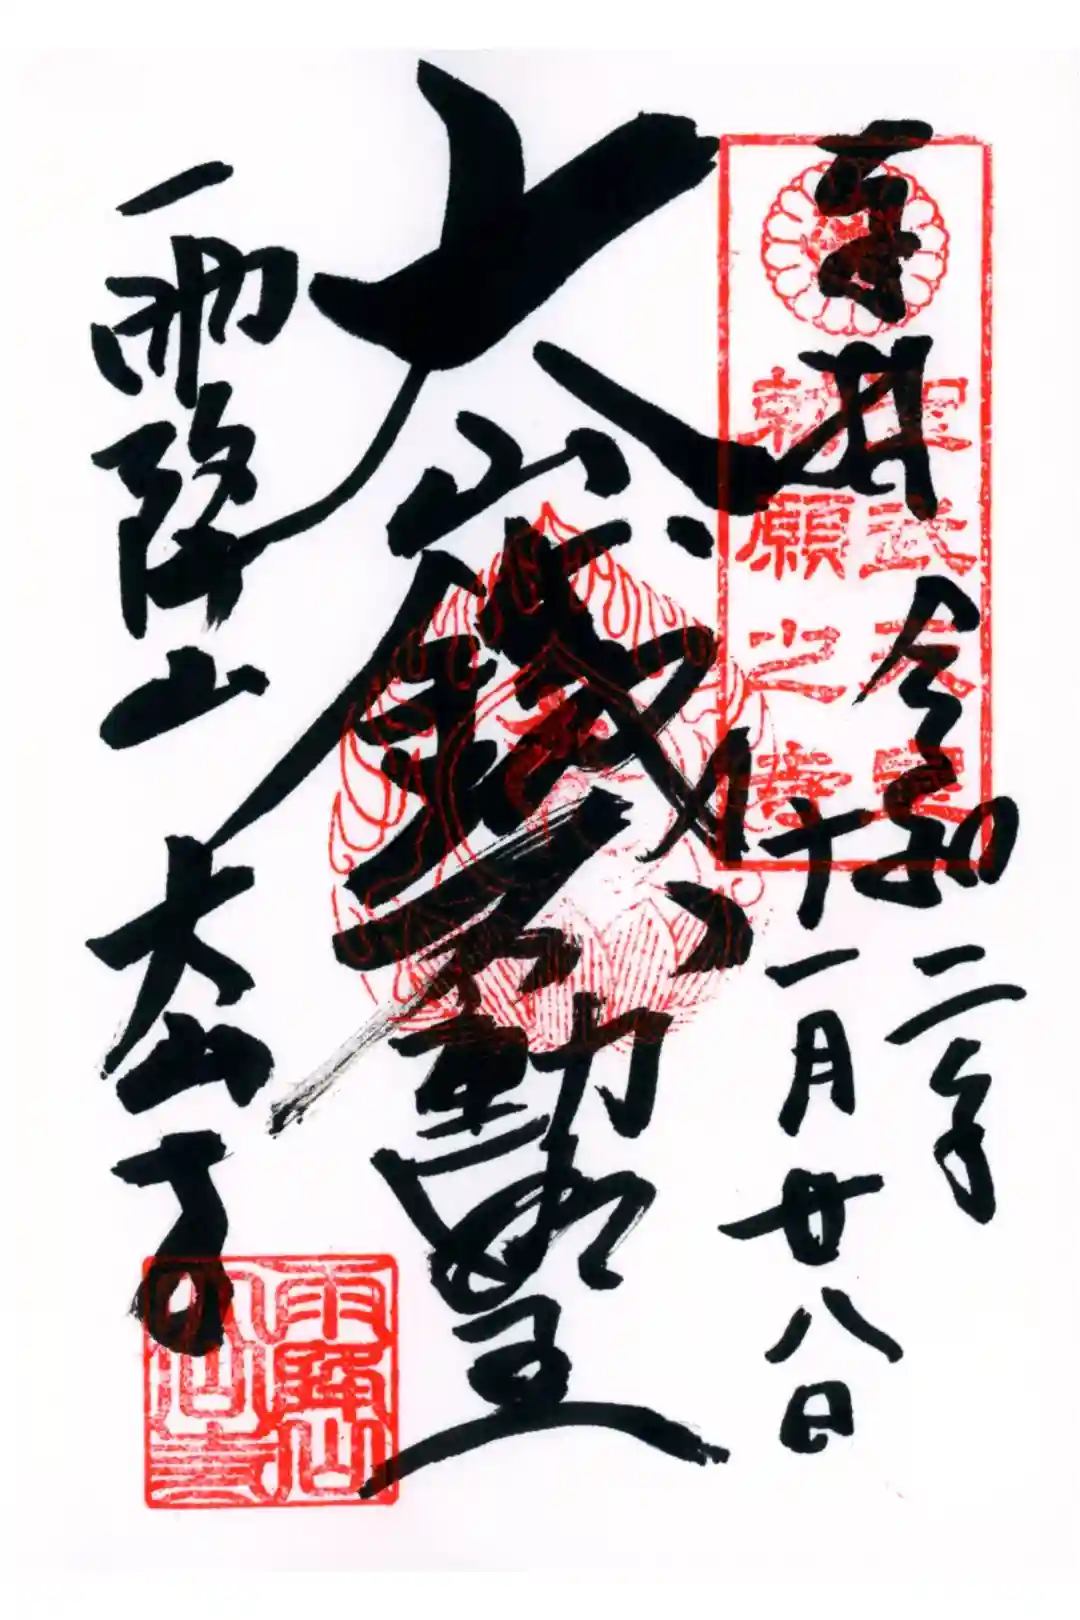 奉拝
聖武天皇
勅願之寺
令和二年
十一月廿八日
大山鐵不動明王
雨降山 大山寺
雨降山
大山寺